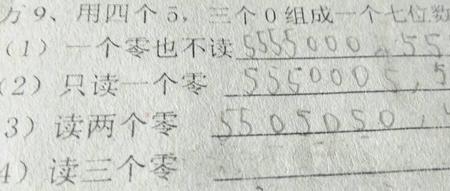 万9、用四个5，三个0组成一个七位数
(1) 一个零也不读 5555000，55
(2) 只读一个零 5550005，5
3) 读两个零 5505050，
4) 读三个零